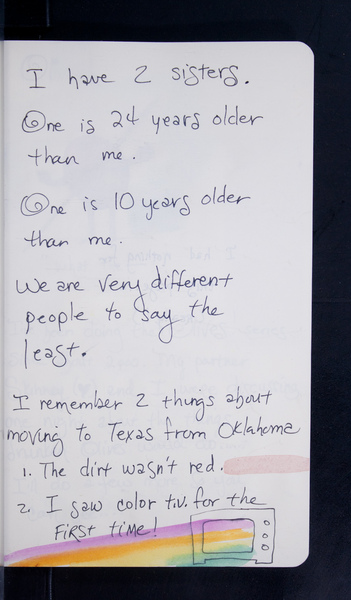 I have 2 sisters.
One is 24 years older
than me.
One is 10 years older
than me.
We are very different
people to say the
least.
I remember 2 things about
moving to Texas from Oklahoma
1. The dirt wasn't red.
2. I saw color t.v. for the
FIRST time!